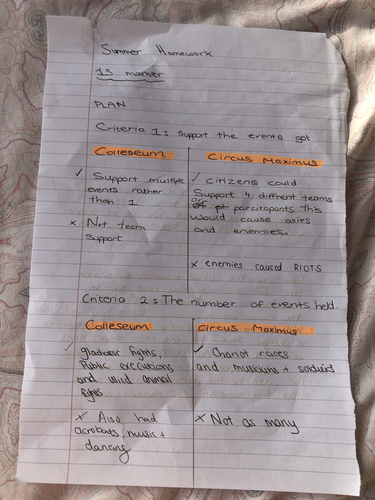 Summer Homework
15 marker
PLAN
Criteria 1: Support the events got
Colleseum
✓ Support multiple
events rather
than 1
x Not team
support
Circus Maximus
✓ Citizens could
Support 4 diffrent teams
or participants this
would cause axies
and enemies.
x enemies caused RIOTS
Criteria 2: The number of events held.
Colleseum
✓ gladiator fights,
Public executions
and wild animal
fights
x Also had
acrobats, music +
dancing
Circus Maximus
✓ Chariot races
and musicians + soldiers
x Not as many